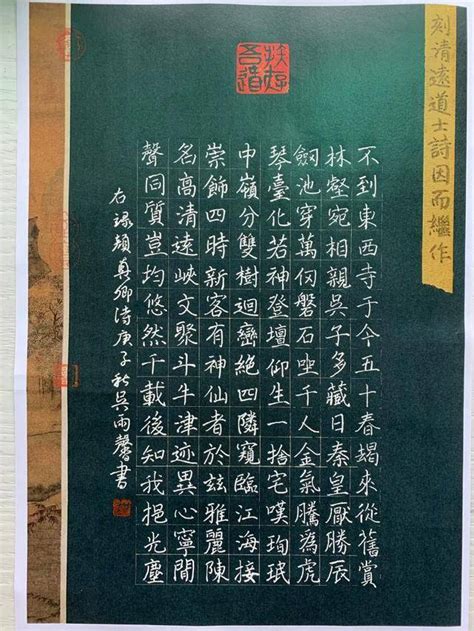 刻清遠道士詩因而繼作
不到東西寺于今五十春朅來從舊賞
林壑宛相親吳子多藏日秦皇厭勝辰
劒池穿萬仞磐石坐千人金氣騰爲虎
琴臺化若神登壇仰生一捨宅嘆珣珉
中嶺分雙樹迴巒絕四隣窺臨江海接
崇飾四時新客有神仙者於茲雅麗陳
名高清遠峽文聚斗牛津迹異心寧間
聲同質豈均悠然千載後知我挹光塵
右錄顏真卿詩庚子秋吳雨馨書